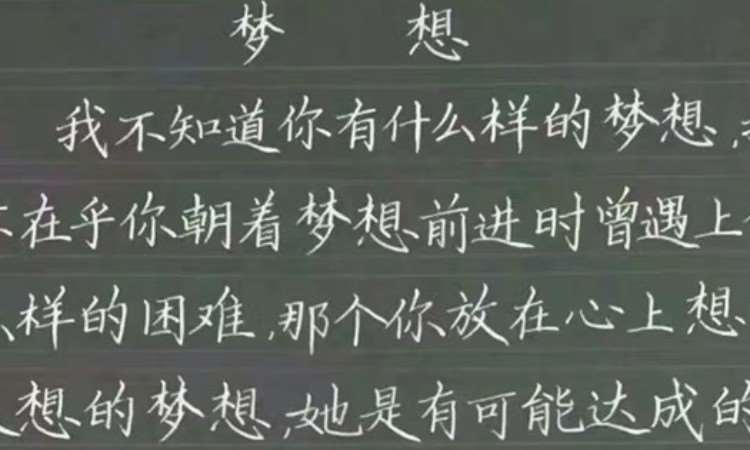 梦 想
我不知道你有什么样的梦想,
在乎你朝着梦想前进时曾遇上
样的困难,那个你放在心上想
想的梦想,她是有可能达成的